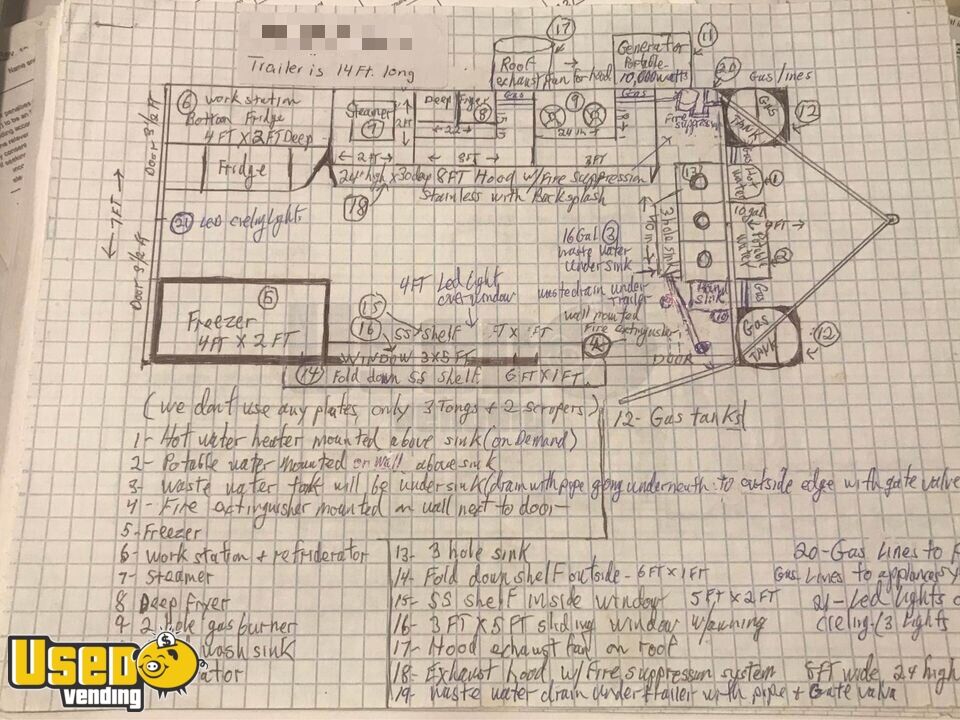 Trailer is 14 Ft. long
17
Roof
exhaust fan for hood
Generator
Portable
10,000 watts
11
20
Gas lines
6 work station
Bottom Fridge
4 FT x 2 FT Deep
Fridge
Steamer
7
2 ft
Deep Fryer
8
Gas
9
24 in
Gas
Fire
suppression
Gas
TANK
12
Doors/2 ft
← 7 FT →
Doors/2 ft
← 2 ft →
← 3 FT →
3 FT
24" high x 30 deep 8 FT Hood w/ Fire Suppression
Stainless with Backsplash
18
13
3 hole sink
Gas
Hot
water
1
10 gal
Potable
water
2
21 Led ceiling lights
16 Gal 3
waste water
under sink
waste drain under
trailer
wall mounted
Fire extinguisher
4
Hand
sink
10
Gas
Gas
TANK
12
DOOR
4 FT Led light
over window
5
Freezer
4 FT x 2 FT
15
16
SS shelf
WINDOW 3 x 5 FT
14 Fold down SS shelf 6 FT x 1 FT.
(we don't use any plates, only 3 Tongs + 2 scrapers)
12- Gas tanks
1- Hot water heater mounted above sink (on Demand)
2- Potable water mounted on wall above sink
3- waste water tank will be under sink (drain with pipe going underneath to outside edge with gate valve
4- Fire extinguisher mounted on wall next to door
5- Freezer
6- work station + refriderator
7- Steamer
8 Deep fryer
9- 2 hole gas burner
wash sink
ator
13- 3 hole sink
14- Fold down shelf outside - 6 FT x 1 FT
15- SS shelf inside window 5 FT x 2 FT
16- 3 FT x 5 FT sliding window w/awning
17- Hood exhaust fan on roof
18- Exhaust hood w/ Fire suppression system 8 ft wide 24 high
19- waste water drain under trailer with pipe + Gate valve
20- Gas Lines to
Gas Lines to appliances
21- Led Lights
cieling (3 lights
Used
vending